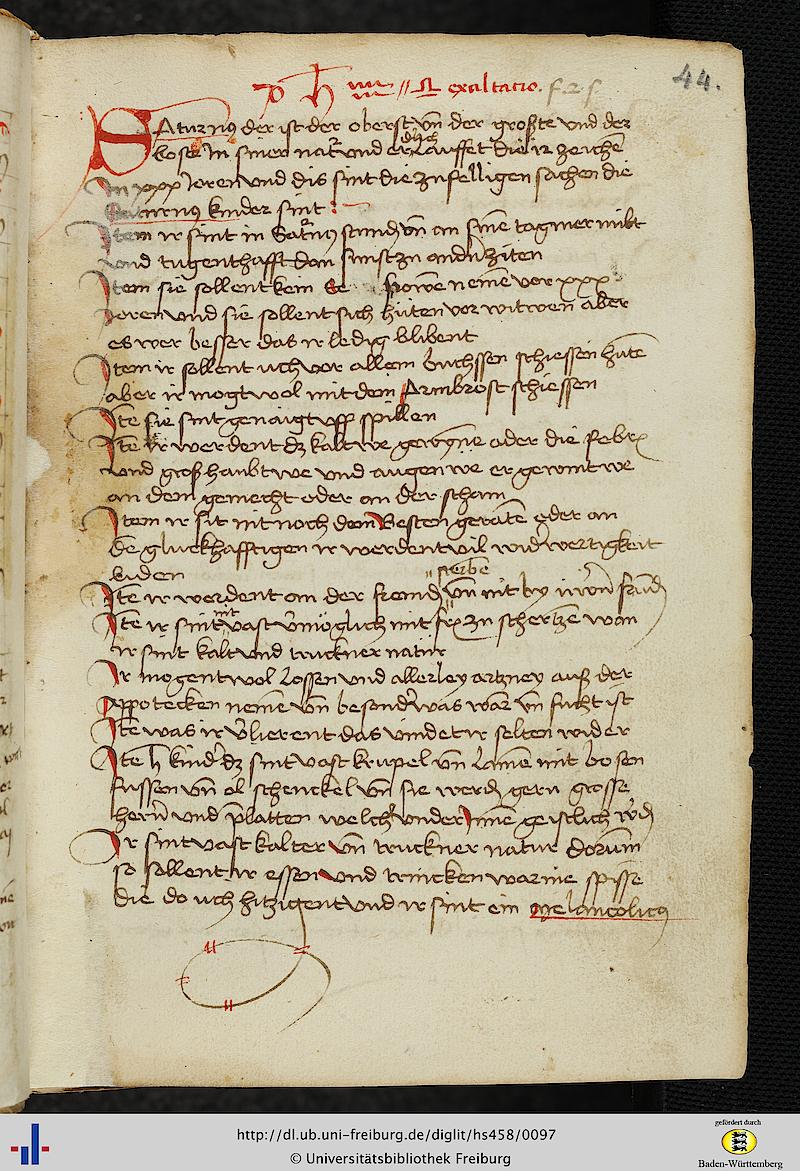 exaltacio.
44.
Saturnus der ist der oberst vn̄ der gröste vnd der
böste In siner natur vnd er durch lauffet die 12 zeichē
In xxx Joren vnd dis sint die zufelligen sachen die
Saturnus kinder sint :
Item ir sint in Saturnus stund vn̄ an sinē tag mer milt
vnd tugenthafft dan sunst zu andn̄ ziten
Item sie sollent kein frowen nemē vor xxx
Joren vnd sie sollent sich hüten vor witwen aber
es wer besser das ir ledig blibent
Item ir sollent uch vor allem buchssen schiessen hütē
aber ir mogt wol mit dem Armbrost schiessen
Itē sie sint genaigt vff spillen
Itē ir werdent dz kalt we gewynē oder die febrē
vnd groß haubt we vnd augen we er gewint we
an dem gemecht oder an der scham
Item ir sit nit noch dem besten geratē oder an
dē gluckhafftigen ir werdent vil widwertigkeit
liden
Itē ir werdent an der fremd sterbē vn̄ nit by uwrn̄ frūd
Itē ir sint nit vast v̄möglich mit zu schertzē wan
ir sint kalt vnd truckner natur
Ir mogent wol lossen vnd allerley artzney auß der
appotecken nemē vn̄ besond̄ was war vn̄ fucht ist
Itē was ir v̄lierent das vindet ir selten wider
Itē ♄ kind dz sint vast krupel vn̄ lamē mit bosen
fussen vn̄ ol schenckel vn̄ sie werdē gern grosse
hern̄ vnd p̄latten welch vnder Inē geistlich w̄dē
Ir sint vast kalter vn̄ truckner natur dorum
so sollent ir essen vnd trincken warme spisse
die do uch hitzigent vnd ir sint ein melancolicus
http://dl.ub.uni-freiburg.de/diglit/hs458/0097
© Universitätsbibliothek Freiburg
gefördert durch
Baden-Württemberg